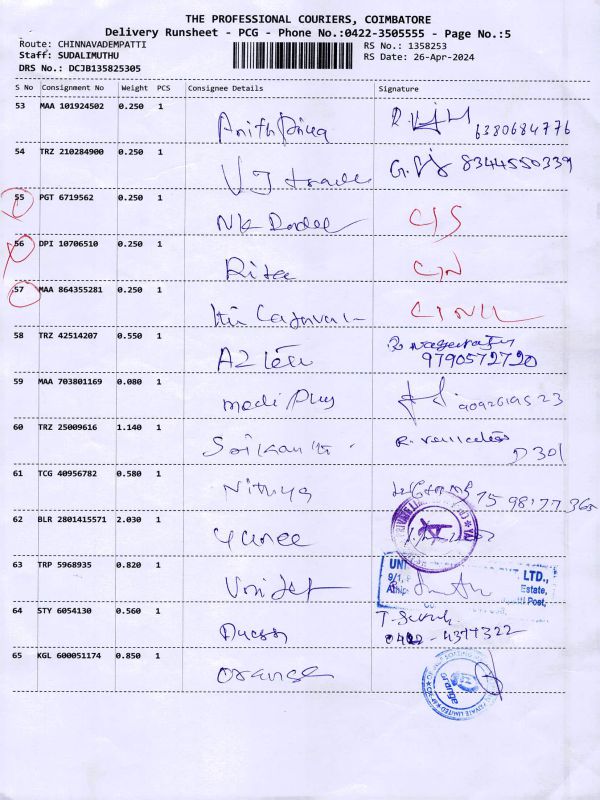 THE PROFESSIONAL COURIERS, COIMBATORE
Delivery Runsheet - PCG - Phone No.:0422-3505555 - Page No.:5
Route: CHINNAVADEMPATTI RS No.: 1358253
Staff: SUDALIMUTHU RS Date: 26-Apr-2024
DRS No.: DCJB135825305
S No Consignment No Weight PCS Consignee Details Signature
53 MAA 101924502 0.250 1
6380684776
54 TRZ 210284900 0.250 1 8344550339
VJ trade
55 PGT 6719562 0.250 1
NK
56 DPI 10706510 0.250 1
Rita
57 MAA 864355281 0.250 1
58 TRZ 42514207 0.550 1
9790572720
59 MAA 703801169 0.080 1
medi plus
60 TRZ 25009616 1.140 1
Srikanth D 301
61 TCG 40956782 0.580 1
Nithya
62 BLR 2801415571 2.030 1
63 TRP 5968935 0.820 1
LTD.,
9/1, Estate,
Post,
64 STY 6054130 0.560 1
0422-4377322
65 KGL 600051174 0.850 1
orange
orange